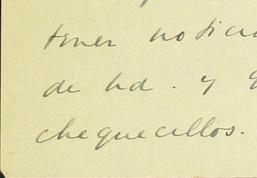 tener notici
de Ud. y
chequecillos.